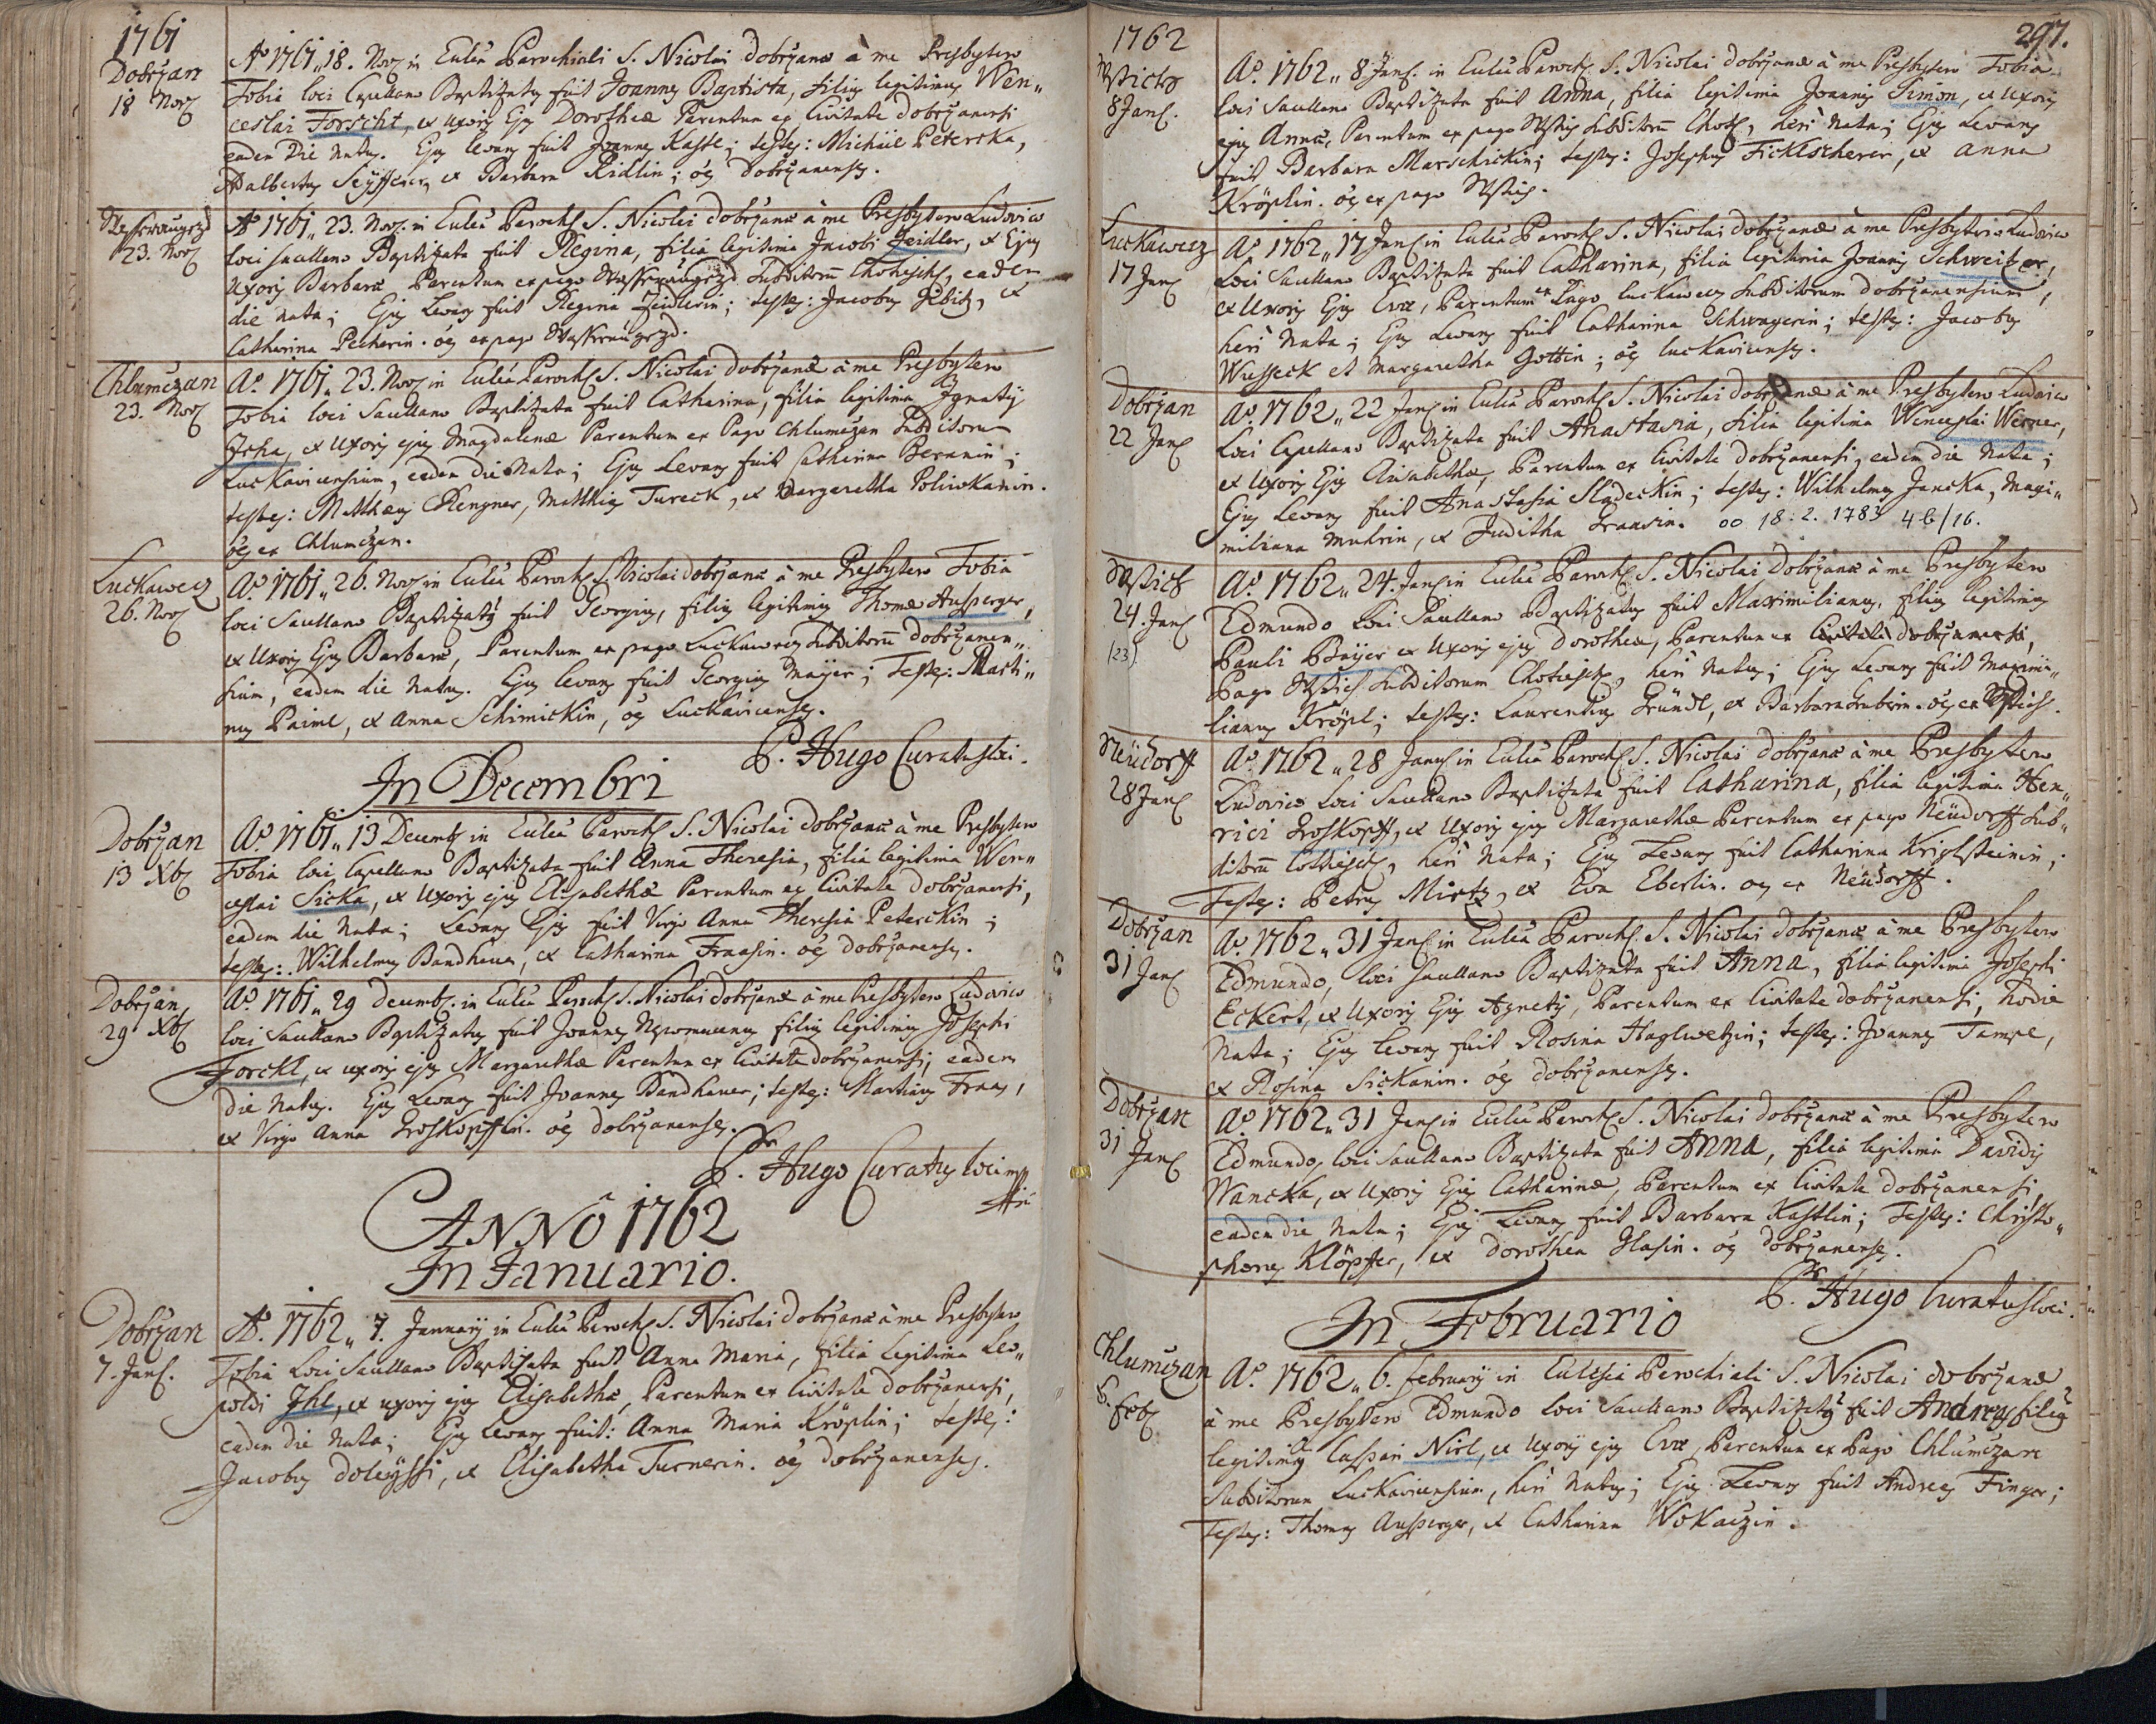 1761
Dobrzan
18 Nov
Aō 1761 „ 18. Nov in Ecclia Parochiali S. Nicolai dobrzanæ à me Presbytero
Tobia loci Capellano Baptizatus fuit Joannes Baptista, filius legitimus Wen„
ceslai Forscht, et uxoris Ejus Dorotheæ Parentum ex Civitate dobrzanensi
eadem Die Natus. Ejus levans fuit Joannes Kastl; testes: Michäel Peterka,
Adalbertus Seÿfferer, et Barbara Ridlin; oēs dobrzanenses.
23. Nov
Aō 1761 „ 23. Nov: in Ecclia Paroch S. Nicolai dobrzanæ à me Presbytero Ludovico
loci Sacellano Baptizata fuit Regina, filia legitima Jacobi Zeidler, et Ejus
Uxoris Barbaræ Parentum ex pago Subditorū Chotiesch, eadem
die nata; Ejus Levans fuit Regina Zeidlerin; testes: Jacobus et
Catharina Pecherin. oēs ex pago
Chlumczan
23. Nov
Aō. 1761 „ 23. Nov in Ecclia Paroch S. Nicolai Dobrzanæ à me Presbytero
Tobia loci Sacellano Baptizata fuit Catharina, filia legitima Ignatÿ
et Uxoris ejus Magdalenæ Parentum ex Pago Chlumczan Subditorum
Luckavicensium, eadem die Nata; Ejus Levans fuit Catharina Beranin;
testes: Matthæus Rengner, Matthias Tureck, et Margaretha Poliwkanin.
oēs ex Chlumczan.
Luckawecz
26. Nov
Aō. 1761 „ 26. Nov in Ecclia Paroch S. Nicolai dobrzanæ à me Presbytero Tobia
loci Sacellano Baptizatus fuit Georgius, filius legitimus Thomæ Ausperger,
et Uxoris Ejus Barbaræ, Parentum ex pago Luckawecz Subditorū dobrzanen„
sium, eadem die Natus. Ejus levans fuit Georgius Maÿer; Testes: Marti„
nus Paiml, et Anna Schimickin, oēs Luckavicenses.
P. Hugo Curatus loci.
In Decembri
Dobrzan
13 Xb
Aō. 1761 „ 13 Decemb in Ecclia Paroch S. Nicolai dobrzanæ à me Presbytero
Tobia loci Capellano Baptizata fuit Anna Theresia, filia legitima Wen„
ceslai Sicka, et Uxoris ejus Elisabethæ Parentum ex Civitate dobrzanensi,
eadem die Nata; Levans Ejus fuit Virgo Anna Theresia Peterckin;
testes: Wilhelmus Bandhauer, et Catharina Fraasin. oēs dobrzanenses.
Dobrzan
29 Xb
Aō. 1761 „ 29 Decemb. in Ecclia Paroch S. Nicolai dobrzanæ à me Presbytero Ludovico
loci Sacellano Baptizatus fuit Joannes Nepomucenus filius legitimus Josephi
Forckl, et uxoris ejus Margarethæ Parentum ex Civitate dobrzanensi, eadem
die Natus. Ejus Levans fuit Joannes Bandhauer; testes: Martinus Fraas,
et Virgo Anna Groskopffin. oēs dobrzanenses.
P. Hugo Curatus loci mpp
ANNO 1762
In Januario.
Dobrzan
7. Jan.
Aō. 1762 „ 7. Januarÿ in Ecclia Paroch S. Nicolai Dobrzanæ à me Presbytero
Tobia Loci Sacellano Baptizata fuit Anna Maria, filia Legitima Leo„
poldi Ihl, et uxoris ejus Elisabethæ, Parentum ex Civitate dobrzanensi,
eadem die Nata; Ejus Levans fuit: Anna Maria Kröplin; testes:
Jacobus doleÿschi, et Elisabetha Turnerin. oēs dobrzanenses.
1762
297.
8 Jan.
Aō. 1762 „ 8 Jan. in Ecclia Paroch S. Nicolai dobrzanæ à me Presbytero Tobia
loci Sacellano Baptizata fuit Anna, filia legitima Joannis Simon, et Uxoris
ejus Annæ, Parentum ex pago Subditorū Chot, heri Nata; Ejus Levans
fuit Barbara Marschickin; testes: Josephus Ficklscherer, et Anna
Kröplin. oēs ex pago
Luckawecz
17 Jan
Aō. 1762 „ 17 Jan in Ecclia Paroch S. Nicolai dobrzanæ à me Presbytero Ludovico
Loci Sacellano Baptizata fuit Catharina, filia legitima Joannis Schweitzer,
et Uxoris Ejus Evæ, Parentum ex Pago Luckawecz Subditorum dobrzanensium,
heri Nata; Ejus Levans fuit Catharina Schwagerin; testes: Jacobus
Wusseck et Margaretha Gottin; oēs luckavicenses.
Dobrzan
22 Jan
Aō. 1762 „ 22 Jan in Ecclia Paroch S. Nicolai dobrzanæ à me Presbytero Ludovico
Loci Capellano Baptizata fuit Anastasia, filia legitima Wenceslai Werner,
et Uxoris Ejus Elisabethæ, Parentum ex Civitate dobrzanensi, eadem die Nata;
Ejus Levans fuit Anastasia Sladeckin; testes: Wilhelmus Jancka, Maxi„
miliana Muhrin, et Juditha Krausin. oo 18:2. 1783 46/16.
24. Jan
(23)
Aō. 1762 „ 24. Jan in Ecclia Paroch S. Nicolai Dobrzanæ à me Presbytero
Edmundo Loci Sacellano Baptizatus fuit Maximilianus, filius legitimus
Pauli Baÿer et Uxoris ejus Dorotheæ, Parentum ex Civitate dobrzanensi,
Pago Subditorum Chotiesch, heri Natus; Ejus Levans fuit Maximi„
lianus Kröpl; testes: Laurentius Gründl, et Barbara Grubirin. oēs ex
Neüdorff
28 Jan
Aō. 1762 „ 28 Jan in Ecclia Paroch S. Nicolai dobrzanæ à me Presbytero
Ludovico Loci Sacellano Baptizata fuit Catharina, filia legitima Hen„
rici Groskopff, et Uxoris ejus Margarethæ Parentum ex pago Neüdorff Sub„
ditorū Cothiesch, heri Nata; Ejus Levans fuit Catharina Kriglsteinin;
Testes: Petrus Mirtz, et Eva Eberlin. oēs ex Neüdorff.
Dobrzan
31 Jan
Aō. 1762 „ 31 Jan in Ecclia Paroch S. Nicolai Dobrzanæ à me Presbytero
Edmundo, loci Sacellano Baptizata fuit Anna, filia legitima Josephi
Eckert, et Uxoris Ejus Agnetis, Parentum ex Civitate dobrzanensi, hodie
Nata; Ejus Levans fuit Rosina Haglwetzin; testes: Joannes Tampe,
et Rosina Sickanin. oēs dobrzanenses.
Dobrzan
31 Jan
Aō. 1762 „ 31 Jan in Ecclia Paroch S. Nicolai Dobrzanæ à me Presbytero
Edmundo, loci Sacellano Baptizata fuit Anna, filia legitima Davidis
Wancka, et Uxoris Ejus Catharinæ, Parentum ex Civitate dobrzanensi
eadem die Nata; Ejus Levans fuit Barbara Kastlin; Testes: Christo„
phorus Klöpffer, et Dorothea Hasin. oēs dobrzanenses.
P. Hugo Curatus loci.
In Februario
Chlumczan
6. Feb
Aō. 1762 „ 6. februarÿ in Ecclesia Parochiali S. Nicolai dobrzanæ
à me Presbytero Edmundo loci Sacellano Baptizatus fuit Andreas filius
legitimus Caspari Nirl, et Uxoris ejus Evæ, Parentum ex Pago Chlumczan
Subditorum Luckavicensium, heri Natus; Ejus Levans fuit Andreas Finger;
Testes: Thomas Ausperger, et Catharina Wokaczin.